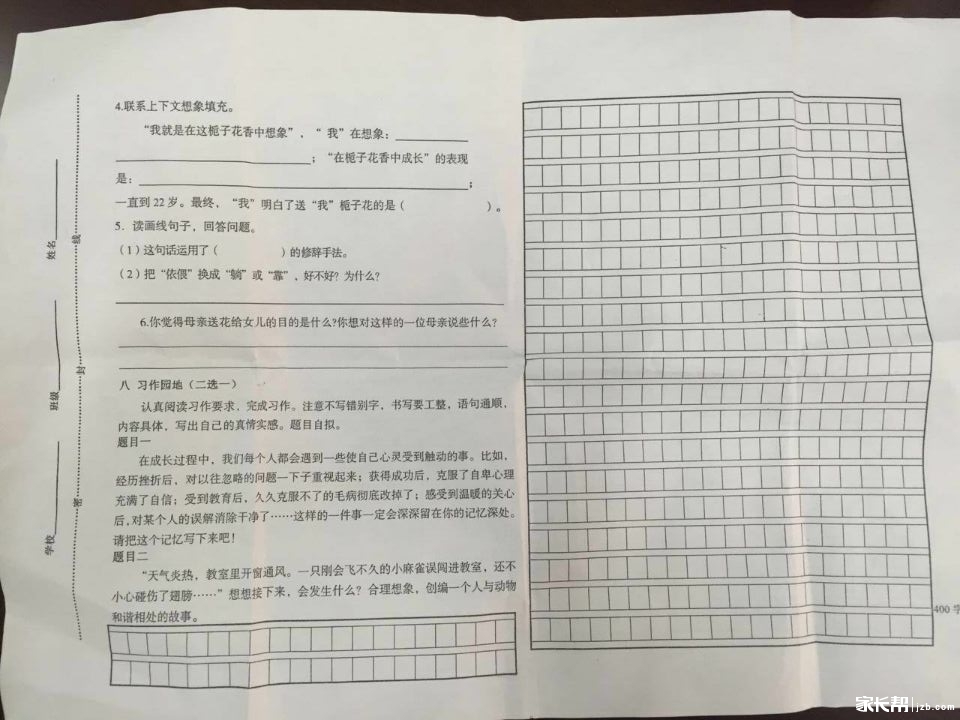 4.联系上下文想象填充。
“我就是在这栀子花香中想象”，“ 我”在想象：____________
________________________________；“在栀子花香中成长”的表现
是：______________________________________________________；
一直到 22 岁。最终，“我”明白了送“我”栀子花的是（　　　　　　）。
5．读画线句子，回答问题。
（1）这句话运用了（　　　　　）的修辞手法。
（2）把“依偎”换成“躺”或“靠”，好不好？为什么？
6.你觉得母亲送花给女儿的目的是什么?你想对这样的一位母亲说些什么？
八 习作园地（二选一）
认真阅读习作要求，完成习作。注意不写错别字，书写要工整，语句通顺，
内容具体，写出自己的真情实感。题目自拟。
题目一
在成长过程中，我们每个人都会遇到一些使自己心灵受到触动的事。比如，
经历挫折后，对以往忽略的问题一下子重视起来；获得成功后，克服了自卑心理
充满了自信；受到教育后，久久克服不了的毛病彻底改掉了；感受到温暖的关心
后，对某个人的误解消除干净了……这样的一件事一定会深深留在你的记忆深处。
请把这个记忆写下来吧！
题目二
“天气炎热，教室里开窗通风。一只刚会飞不久的小麻雀误闯进教室，还不
小心碰伤了翅膀……”想想接下来，会发生什么？合理想象，创编一个人与动物
和谐相处的故事。
学校__________ 班级__________ 姓名__________
密 封 线
400 字
家长帮 jzb.com